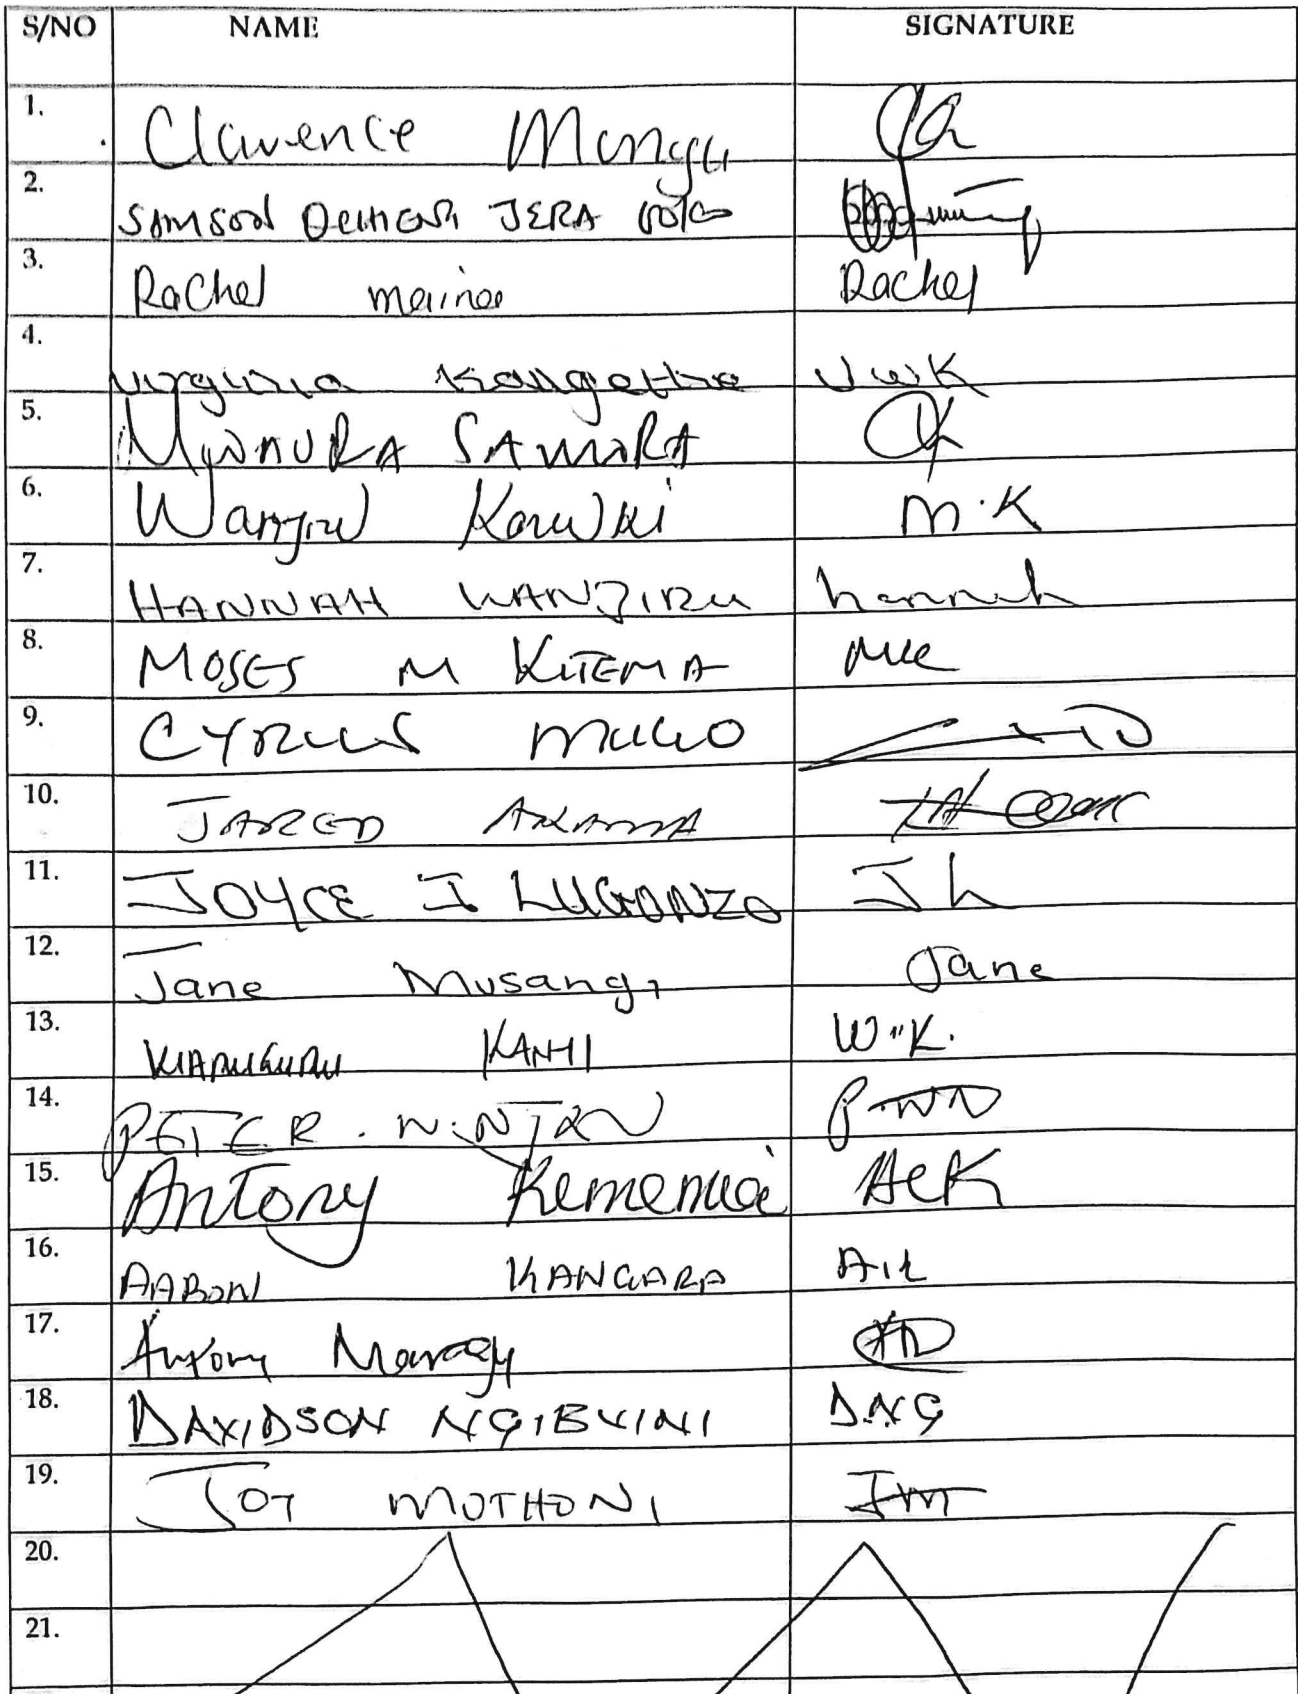 S/NO NAME SIGNATURE
1. Clarence
2. SAMSON JERA
3. Rachel Maina Rachel
4. Virginia Kangethe VWK
5. MWAURA SAMORA
6. Wanjiru Kariuki M.K
7. HANNAH WANJIRU hannah
8. MOSES M KITEMA
9. CYRUS MUGO
10. JARED AKAMA
11. JOYCE I LUGONZO JL
12. Jane Musangi Jane
13. KANHI W.K.
14. PETER . N. NJAU P.WN
15. Antony Kememia AEK
16. AARON KANGARA A.K
17. Antony
18. DAVIDSON NGIBUINI D.N.G
19. JOY MUTHONI JM
20.
21.